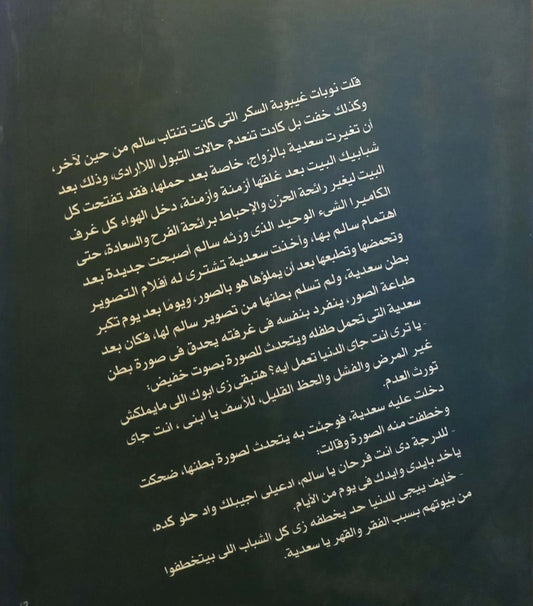 قلت نوبات غيبوبة السكر التى كانت تنتاب سالم من حين لآخر،
وكذلك خفت بل كادت تنعدم حالات التبول اللاإرادى، وذلك بعد
أن تغيرت سعدية بالزواج، خاصة بعد حملها، فقد تفتحت كل
شبابيك البيت بعد غلقها أزمنة وأزمنة، دخل الهواء كل غرف
البيت ليغير رائحة الحزن والإحباط برائحة الفرح والسعادة، حتى
الكاميرا الشىء الوحيد الذى ورثه سالم أصبحت جديدة بعد
اهتمام سالم بها، وأخذت سعدية تشترى له أفلام التصوير
وتحمضها وتطبعها بعد أن يملؤها هو بالصور، ويومًا بعد يوم تكبر
بطن سعدية، ولم تسلم بطنها من تصوير سالم لها، فكان بعد
طباعة الصور، ينفرد بنفسه فى غرفته يحدق فى صورة بطن
سعدية التى تحمل طفله ويتحدث للصورة بصوت خفيض:
- يا ترى انت جاى الدنيا تعمل ايه؟ هتبقى زى ابوك اللى مايملكش
غير المرض والفشل والحظ القليل، للأسف يا ابنى ، انت جاى
تورث العدم.
دخلت عليه سعدية، فوجئت به يتحدث لصورة بطنها، ضحكت
وخطفت منه الصورة وقالت:
- للدرجة دى انت فرحان يا سالم، ادعيلى اجيبلك واد حلو كده،
ياخد بايدى وايدك فى يوم من الأيام.
- خايف ييجى للدنيا حد يخطفه زى كل الشباب اللى بيتخطفوا
من بيوتهم بسبب الفقر والقهر يا سعدية.